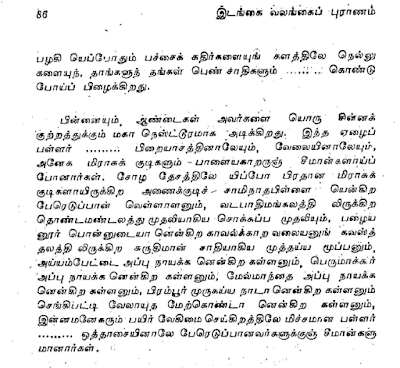 86
இடங்கை வலங்கைப் புராணம்
பழகி யெப்போதும் பச்சைக் கதிர்களையுங் களத்திலே நெல்லு
களையுந், தாங்களுந் தங்கள் பெண் சாதிகளும் ......... கொண்டு
போய்ப் பிழைக்கிறது.
பின்னையும் ஆண்டைகள் அவர்களை யொரு சின்னக்
குற்றத்துக்கும் மகா நெஸ்ட்டூரமாக அடிக்கிறது. இந்த ஏழைப்
பள்ளர் ......... பிறையாசத்தினாலேயும், வேலையினாலேயும்,
அனேக மிராசுக் குடிகளும் - பாளையகாறருஞ் சீமான்களாய்ப்
போனார்கள். சோழ தேசத்திலே யிப்போ பிரதான மிராசுக்
குடிகளாயிருக்கிற அணைக்குடிச் - சாமிநாதபிள்ளை யென்கிற
பேரெடுப்பான் வெள்ளாளனும், வடபாதிமங்கலத்தி லிருக்கிற
தொண்டமண்டலத்து முதலியாகிய சொக்கப்ப முதலியும், பழைய
னூர் பொன்னுடையா னென்கிற காவல்க்காற வலையனுங் கவஸ்த்
தலத்தி லிருக்கிற சுருதிமான் சாதியாகிய முத்தய்ய மூப்பனும்,
அய்யம்பேட்டை அப்பு நாயக்க னென்கிற கள்ளனும், பெருமாக்கர்
அப்பு நாயக்க னென்கிற கள்ளனும், மேல்மாந்தை அப்பு நாயக்க
னென்கிற கள்ளனும், பிரம்பூர் முருகய்ய நாடா னென்கிற கள்ளனும்
செங்கிபட்டி வேலாயுத மேற்கொண்டா னென்கிற கள்ளனும்,
இன்னமனேகரும் பயிர் வேகிமை செய்கிறத்திலே மிச்சமான பள்ளர்
...... ஒத்தாசையினாலே பேரெடுப்பானவர்களுக்குஞ் சீமான்களு
மானார்கள்.